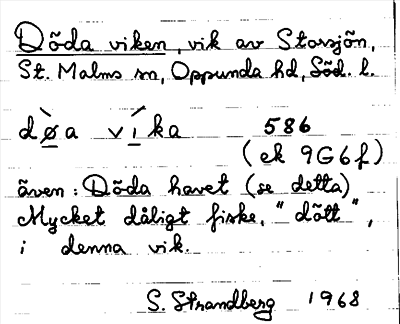 Döda viken, vik av Storsjön,
St. Malms sn, Oppunda hd, Söd. l.
dø̀a víka 586
(ek 9G6f)
även: Döda havet (se detta)
Mycket dåligt fiske, "dött",
i denna vik.
S. Strandberg 1968